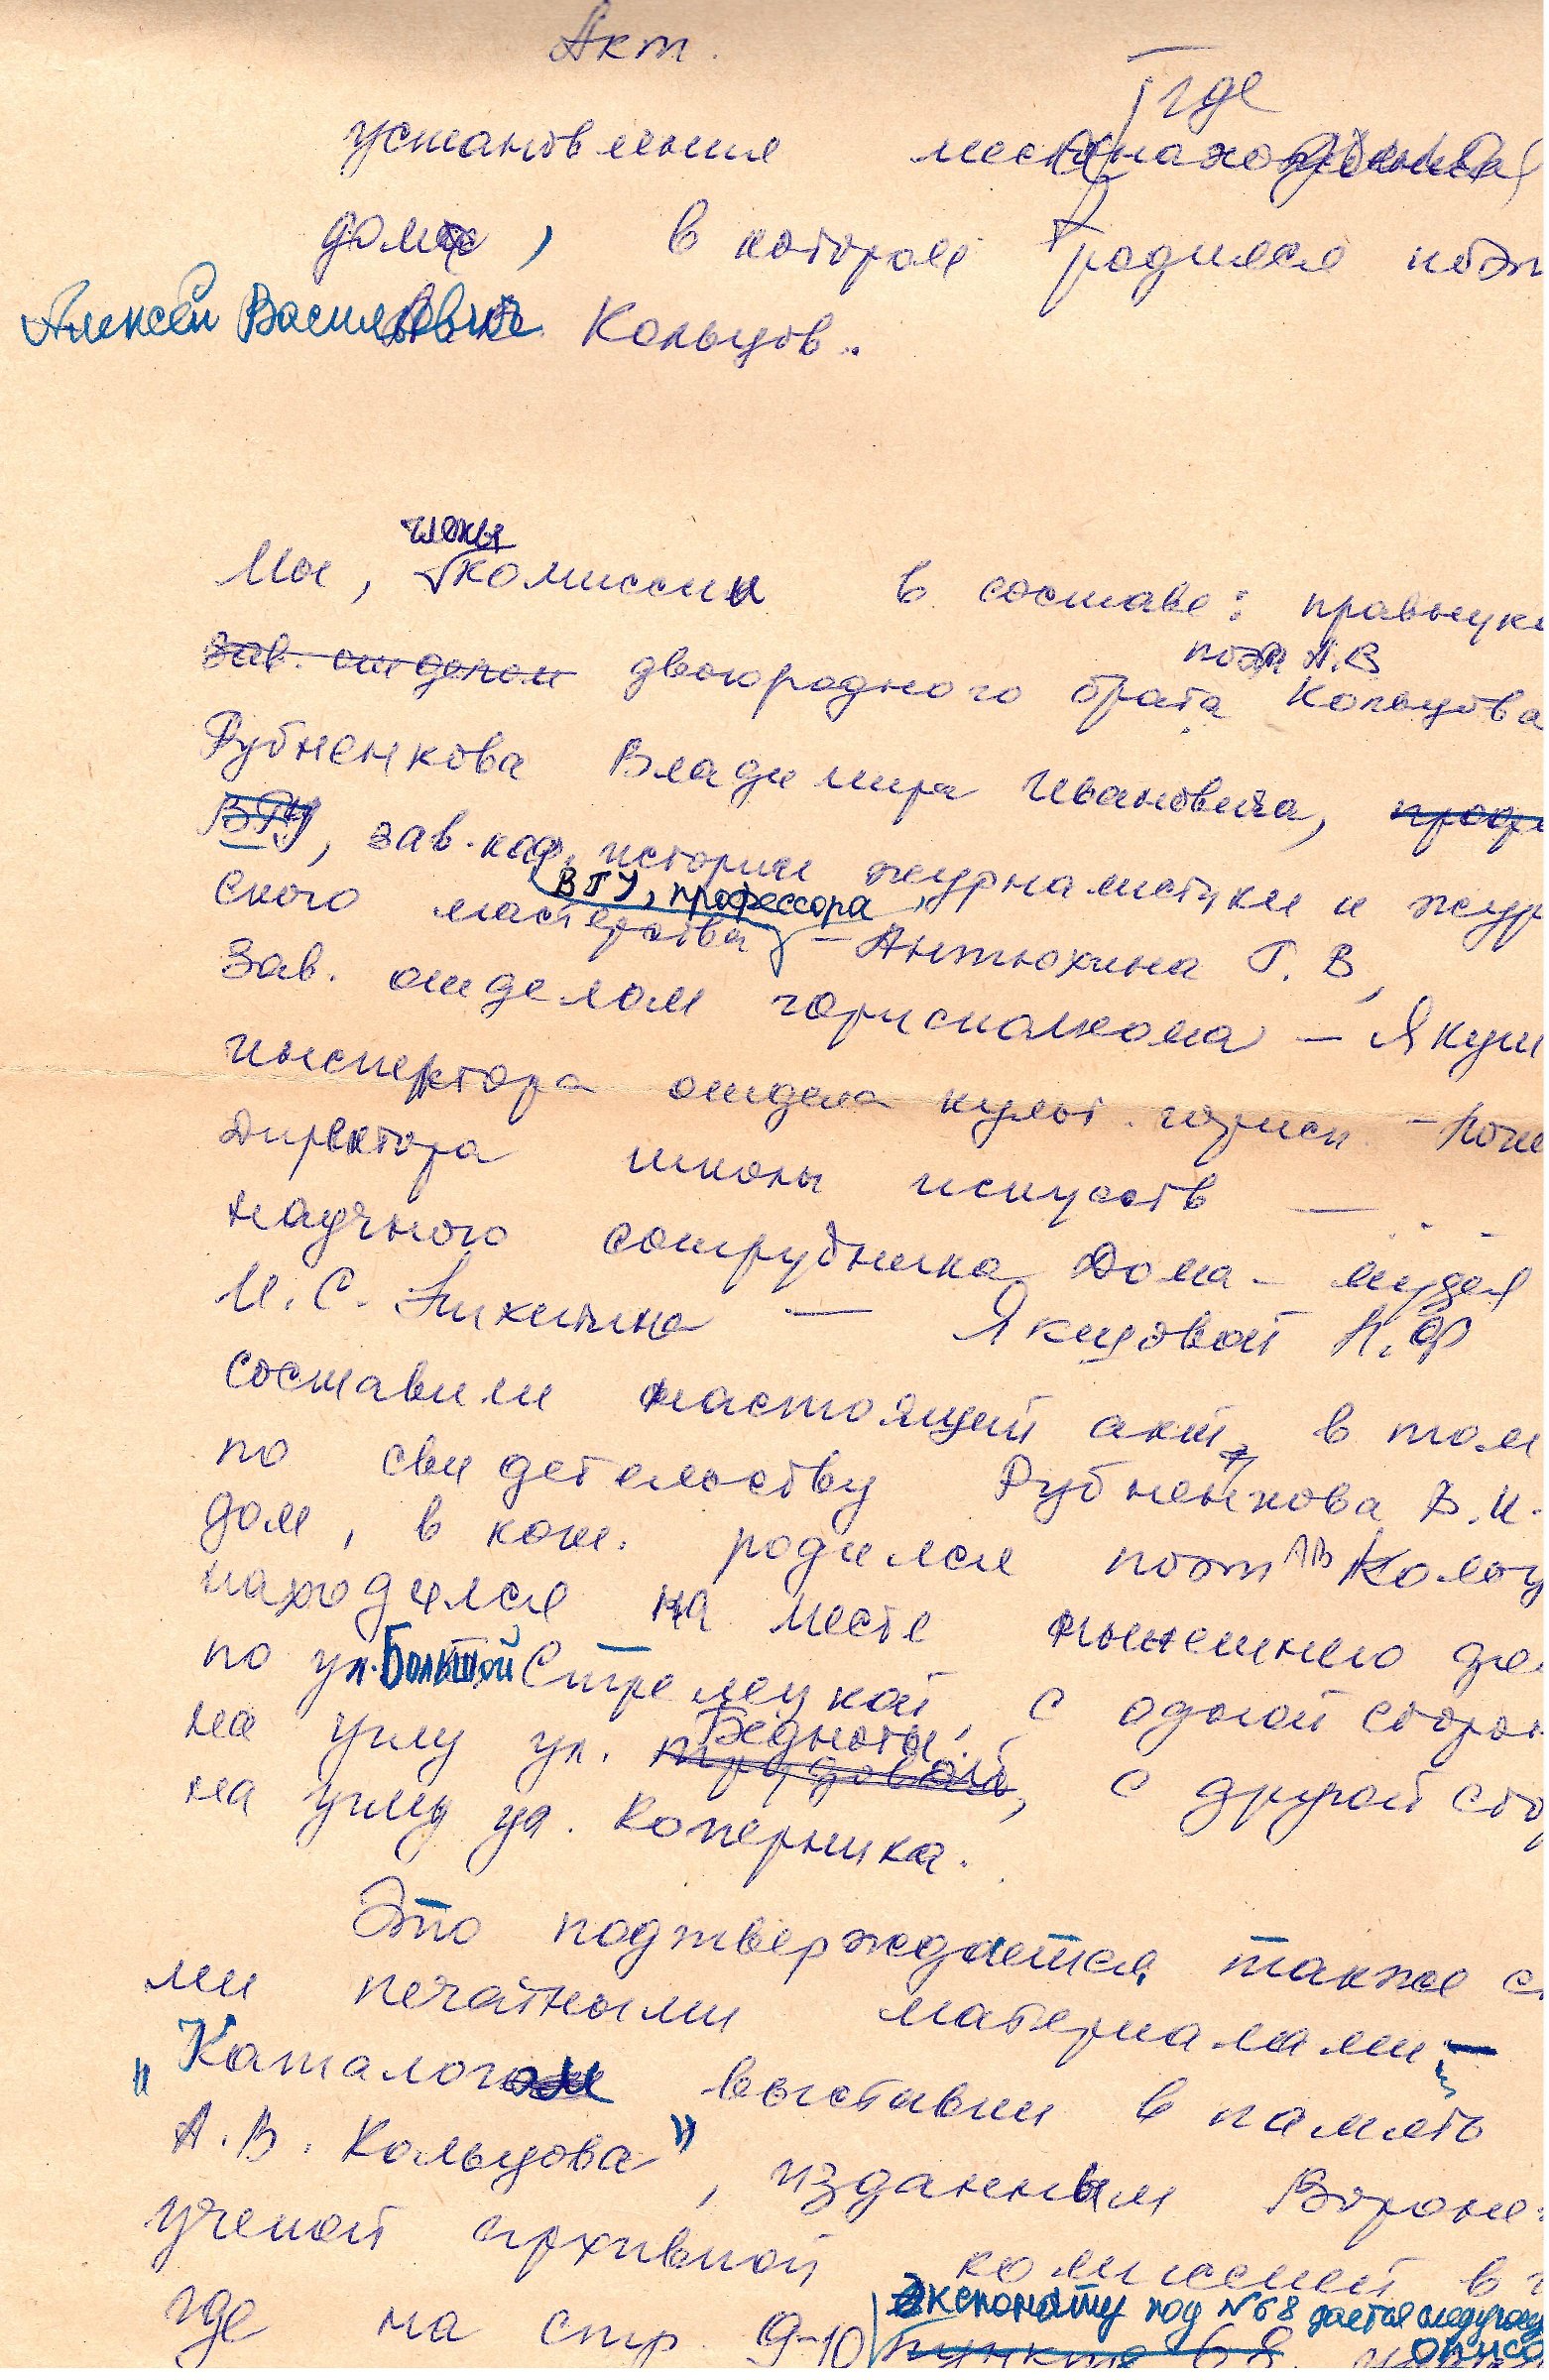 Акт.
где
установления местонахождения
дома, в котором родился поэт
Алексей Васильевич Кольцов.
члены
Мы, комиссии в составе: правнук
поэта А.В
зав. отделом двоюродного брата Кольцова
Рубненкова Владимира Ивановича, проф
ВГУ, зав. каф. истории журналистики и жур
ВГУ, профессора
ского мастерства - Антюхина Г. В,
Зав. отделом горисполкома - Якуш
инспектора отдела культ. горисп. -
Директора школы искусств —
научного сотрудника Дома - музея
И. С. Никитина — Якцовой Н. Ф
составили настоящий акт в том
по свидетельству Рубненкова В. И.
дом, в кот. родился поэт АВ Кольц
находился на месте нынешнего
по ул. Большой Стрелецкой, с одной сторон
Бедноты
на углу ул. трудовой, с другой сто
на углу ул. Коперника.
Это подтверждается также с
ми печатными материалами -
"Каталогом выставки в память
А. В. Кольцова", изданным Вороне
ученой архивной комиссией в
экспонату под №68 дается следующ
где на стр. 9-10 пункте 68
описа